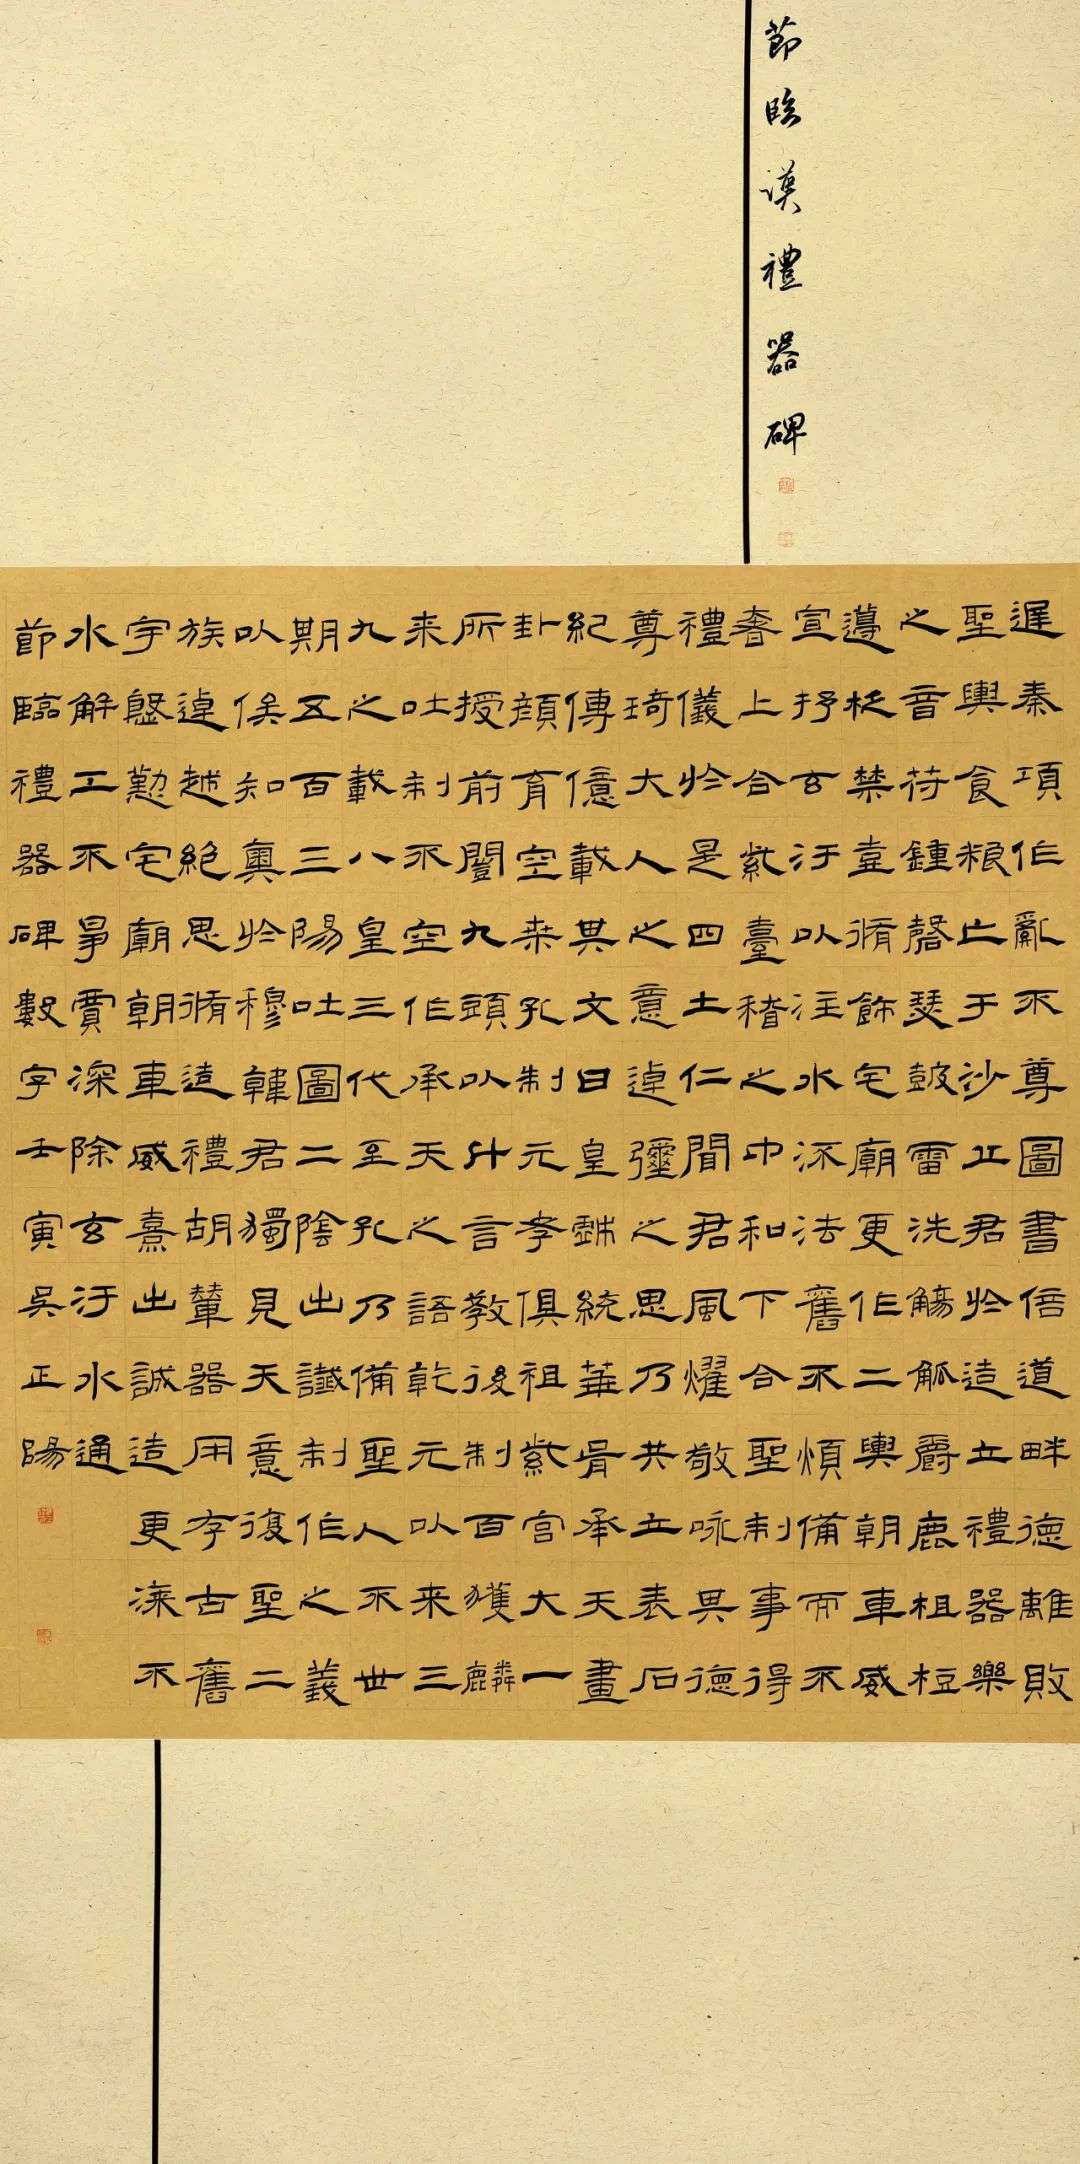 節臨漢禮器碑
遅秦項作亂不尊圖書倍道畔德離敗
聖輿食粮亡于沙丘君於造立禮器樂
之音符鍾磬瑟鼓雷洗觴觚爵鹿柤梪
籩柉禁壺脩飾宅廟更作二輿朝車威
宣抒玄汙以注水流法舊不煩備而不
奢上合紫臺稽之中和下合聖制事得
禮儀於是四土仁聞君風燿敬咏其德
尊琦大人之意逴彌之思乃共立表石
紀傳億載其文曰皇戲統華胥承天畫
卦顏育空桒孔制元孝俱祖紫宮大一
所授前闓九頭以什言教後制百獲麟
来吐制不空作承天之語乾元以来三
九之載八皇三代至孔乃備聖人不世
期五百三陽吐圖二陰出讖制作之義
以俟知奧於穆韓君獨見天意復聖二
族逴越絶思脩造禮胡輦器用存古舊
宇殷勤宅廟朝車威熹出誠造更漆不
水解工不爭賈深除玄汙水通
節臨禮器碑數字壬寅吳正陽